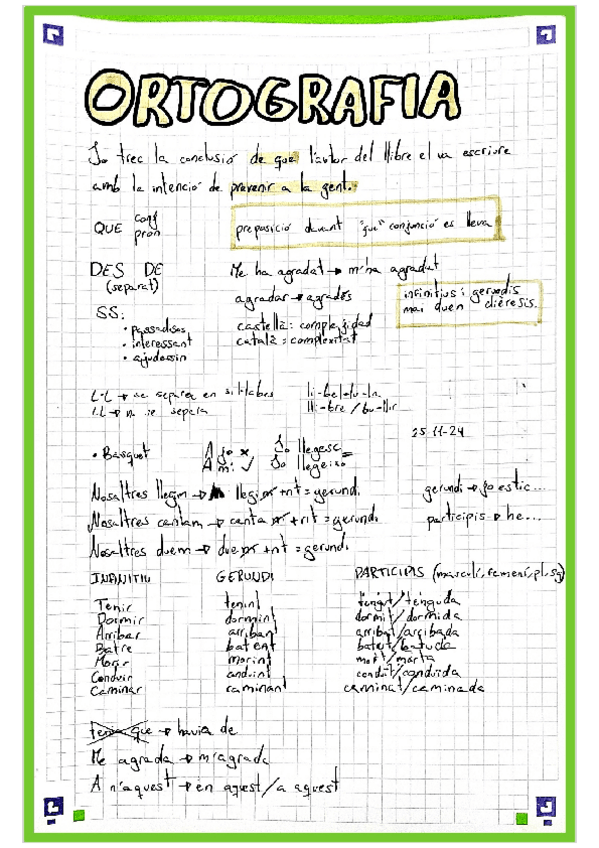 ORTOGRAFIA
Jo trec la conclusió de que l'autor del llibre el va escriure
amb la intenció de prevenir a la gent.
QUE conj
pron
preposició davant "que" conjunció es lleva
DES DE
(separat)
Me ha agradat → m'ha agradat
agradar → agradés
infinitius i gerundis
mai duen dièresis.
SS:
• passadises
• interessant
• ajudassin
castellà: complejidad
català: complexitat
L·L → se separa en síl·labes
LL → no se separa
lli-bre / bu-llir
25-11-24
• Bàsquet
A jo ×
A mi ✓
Jo llegesc
Jo llegeixo
Nosaltres llegim → llegim + nt = gerundi
gerundi → jo estic...
Nosaltres cantam → cantam + nt = gerundi
participis → he...
Nosaltres duem → duem + nt = gerundi
INFINITIU GERUNDI PARTICIPIS (masculí, femení, pl, sg)
Tenir tenint tengut/tenguda
Dormir dormint dormit/dormida
Arribar arribant arribat/arribada
Batre batent batut/batuda
Morir morint mort/morta
Conduir conduint conduït/conduïda
Caminar caminant caminat/caminada
tenia que → havia de
Me agrada → m'agrada
A n'aquest → en aquest/a aquest